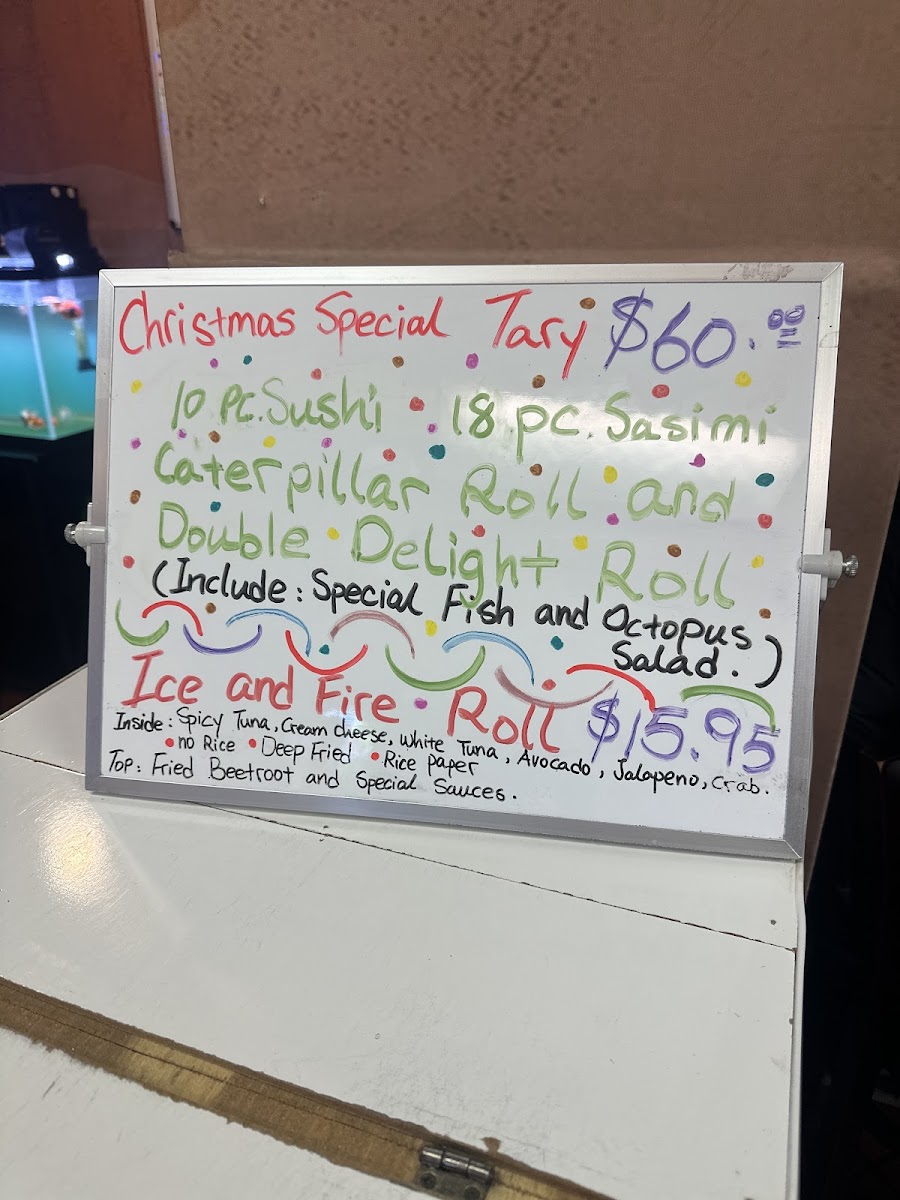 Christmas Special Tary $60.00
10 pc. Sushi 18 pc. Sasimi
Caterpillar Roll and
Double Delight Roll
(Include: Special Fish and Octopus
Salad.)
Ice and Fire Roll $15.95
Inside: Spicy Tuna, Cream cheese, White Tuna, Avocado, Jalapeno, Crab.
• no Rice • Deep Fried • Rice paper
Top: Fried Beetroot and Special Sauces.